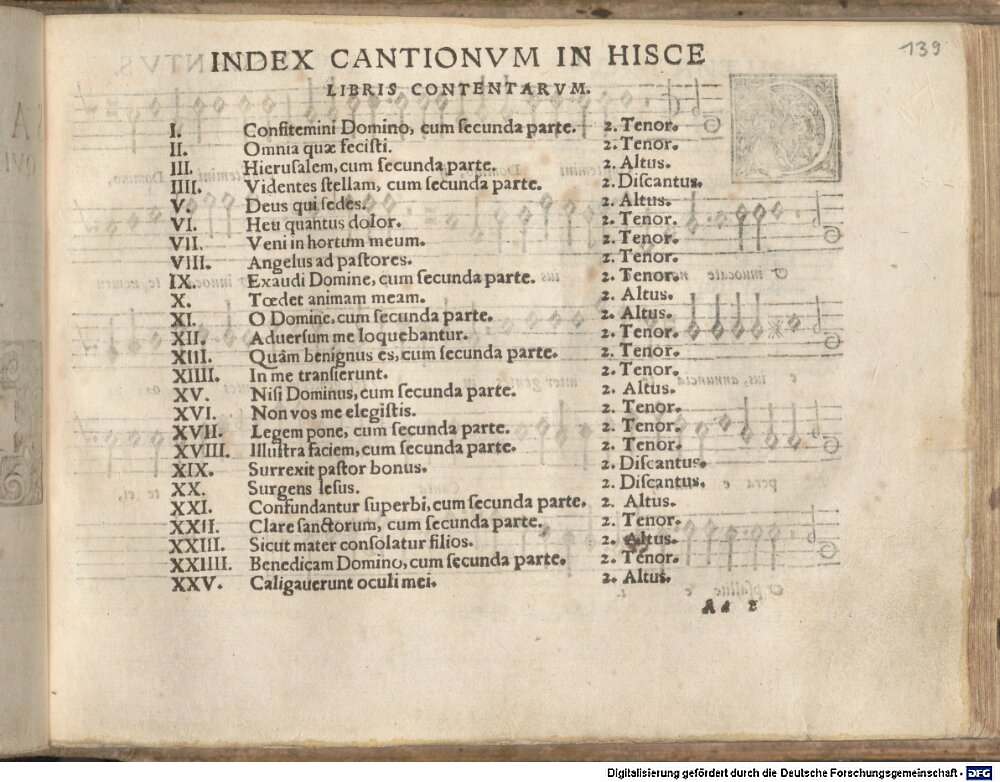 139
INDEX CANTIONVM IN HISCE
LIBRIS CONTENTARVM.
I. Confitemini Domino, cum secunda parte. 2. Tenor.
II. Omnia quæ fecisti. 2. Tenor.
III. Hierusalem, cum secunda parte. 2. Altus.
IIII. Videntes stellam, cum secunda parte. 2. Discantus.
V. Deus qui sedes. 2. Altus.
VI. Heu quantus dolor. 2. Tenor.
VII. Veni in hortum meum. 2. Tenor.
VIII. Angelus ad pastores. 2. Tenor.
IX. Exaudi Domine, cum secunda parte. 2. Tenor.
X. Tœdet animam meam. 2. Altus.
XI. O Domine, cum secunda parte. 2. Altus.
XII. Aduersum me loquebantur. 2. Tenor.
XIII. Quâm benignus es, cum secunda parte. 2. Tenor.
XIIII. In me transierunt. 2. Tenor.
XV. Nisi Dominus, cum secunda parte. 2. Altus.
XVI. Non vos me elegistis. 2. Tenor.
XVII. Legem pone, cum secunda parte. 2. Tenor.
XVIII. Illustra faciem, cum secunda parte. 2. Tenor.
XIX. Surrexit pastor bonus. 2. Discantus.
XX. Surgens Iesus. 2. Discantus.
XXI. Confundantur superbi, cum secunda parte. 2. Altus.
XXII. Clare sanctorum, cum secunda parte. 2. Tenor.
XXIII. Sicut mater consolatur filios. 2. Altus.
XXIIII. Benedicam Domino, cum secunda parte. 2. Tenor.
XXV. Caligauerunt oculi mei. 2. Altus.
Aa 2
Digitalisierung gefördert durch die Deutsche Forschungsgemeinschaft - DFG